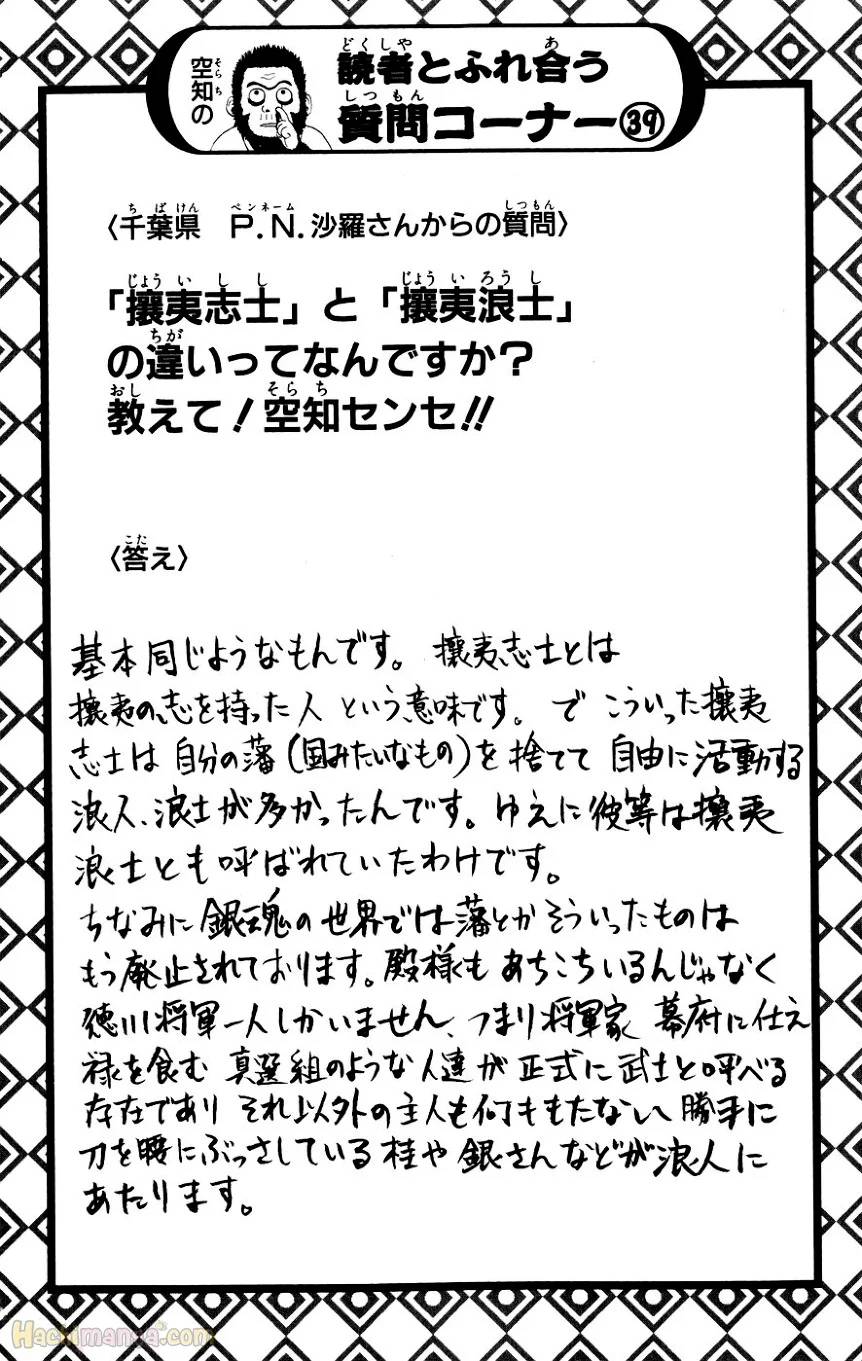 空知の
読者とふれ合う
質問コーナー㊴
〈千葉県　P.N.沙羅さんからの質問〉
「攘夷志士」と「攘夷浪士」
の違いってなんですか?
教えて!空知センセ!!
〈答え〉
基本同じようなもんです。攘夷志士とは
攘夷の志を持った人という意味です。で こういった攘夷
志士は自分の藩(国みたいなもの)を捨てて自由に活動する
浪人、浪士が多かったんです。ゆえに彼等は攘夷
浪士とも呼ばれていたわけです。
ちなみに銀魂の世界では藩とかそういったものは
もう廃止されております。殿様もあちこちいるんじゃなく
徳川将軍一人しかいません、つまり将軍家 幕府に仕え
禄を食む 真選組のような人達が正式に武士と呼べる
存在であり それ以外の主人も何ももたない 勝手に
刀を腰にぶっさしている桂や銀さんなどが浪人に
あたります。
Hachimanga.com